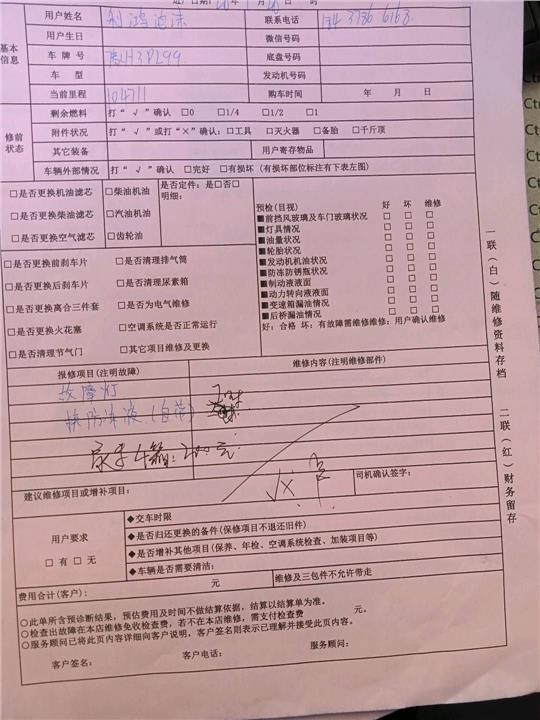 用户姓名
联系电话
基本信息
用户生日
微信号码
车 牌 号 豫H3PL99
底盘号码
车 型
发动机号码
当前里程 104711
购车时间 年 月 日
修前状态
剩余燃料 打“ √ ”确认 □0 □1/4 □1/2 □1
附件状况 打“ √ ”或打“×”确认：□工具 □灭火器 □备胎 □千斤顶
其它装备
用户寄存物品
车辆外部情况 打“ √ ”确认 □完好 □有损坏（有损坏部位标注有下表左图）
□是否更换机油滤芯 □柴油机油
□是否更换柴油滤芯 □汽油机油
□是否更换空气滤芯 □齿轮油
是否定件：是□否□
明细：
□是否更换前刹车片 □是否清理排气筒
□是否更换后刹车片 □是否清理尿素箱
□是否更换离合三件套 □是否为电气维修
□是否更换火花塞 □空调系统是否正常运行
□是否清理节气门 □其它项目维修及更换
预检(目视) 好 坏 维修
■前挡风玻璃及车门玻璃状况 □ □ □
■灯具情况 □ □ □
■油量状况 □ □ □
■轮胎状况 □ □ □
■发动机机油状况 □ □ □
■防冻防锈瓶状况 □ □ □
■制动液液面 □ □ □
■动力转向液液面 □ □ □
■变速箱漏油情况 □ □ □
■后桥漏油情况 □ □ □
好：合格 坏：有故障需维修维修：用户确认维修
报修项目(注明故障)
维修内容(注明维修部件)
故障灯
换防冻液(自带)
尿素4箱:200元
司机确认签字：
建议维修项目或增补项目：
用户要求
□ 有 □ 无
◆交车时限
◆是否归还更换的备件(保修项目不退还旧件)
◆是否增补其他项目(保养、年检、空调系统检查、加装项目等)
◆车辆是否需要清洁：
费用合计(客户)： 元
维修及三包件不允许带走
○此单所含预诊断结果，预估费用及时间不做结算依据，结算以结算单为准。
○检查出故障在本店维修免收检查费，若不在本店维修，需支付检查费 元。
○服务顾问已将此页内容详细向客户说明，客户签名则表示已理解并接受此页内容。
客户签名： 客户电话： 服务顾问：
一联（白）随维修资料存档 二联（红）财务留存